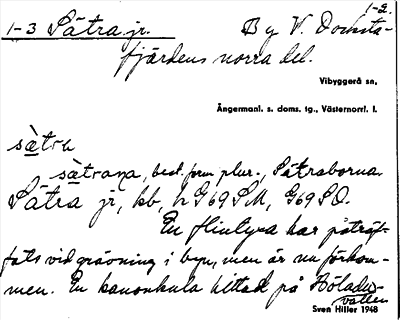 1-2.
1-3 Sätra jr. By V. Docksta-
fjärdens norra del.
Vibyggerå sn,
Ångermanl. s. doms. tg., Västernorrl. l.
sætra
sætrana, best. form plur., Sätraborna.
Sätra jr, kb, h G69SM, G69SO.
En flintyxa har påträf-
fats vid grävning i byn, men är nu förkom-
men. En kanonkula hittad på Böladu-
vallen
Sven Hiller 1948